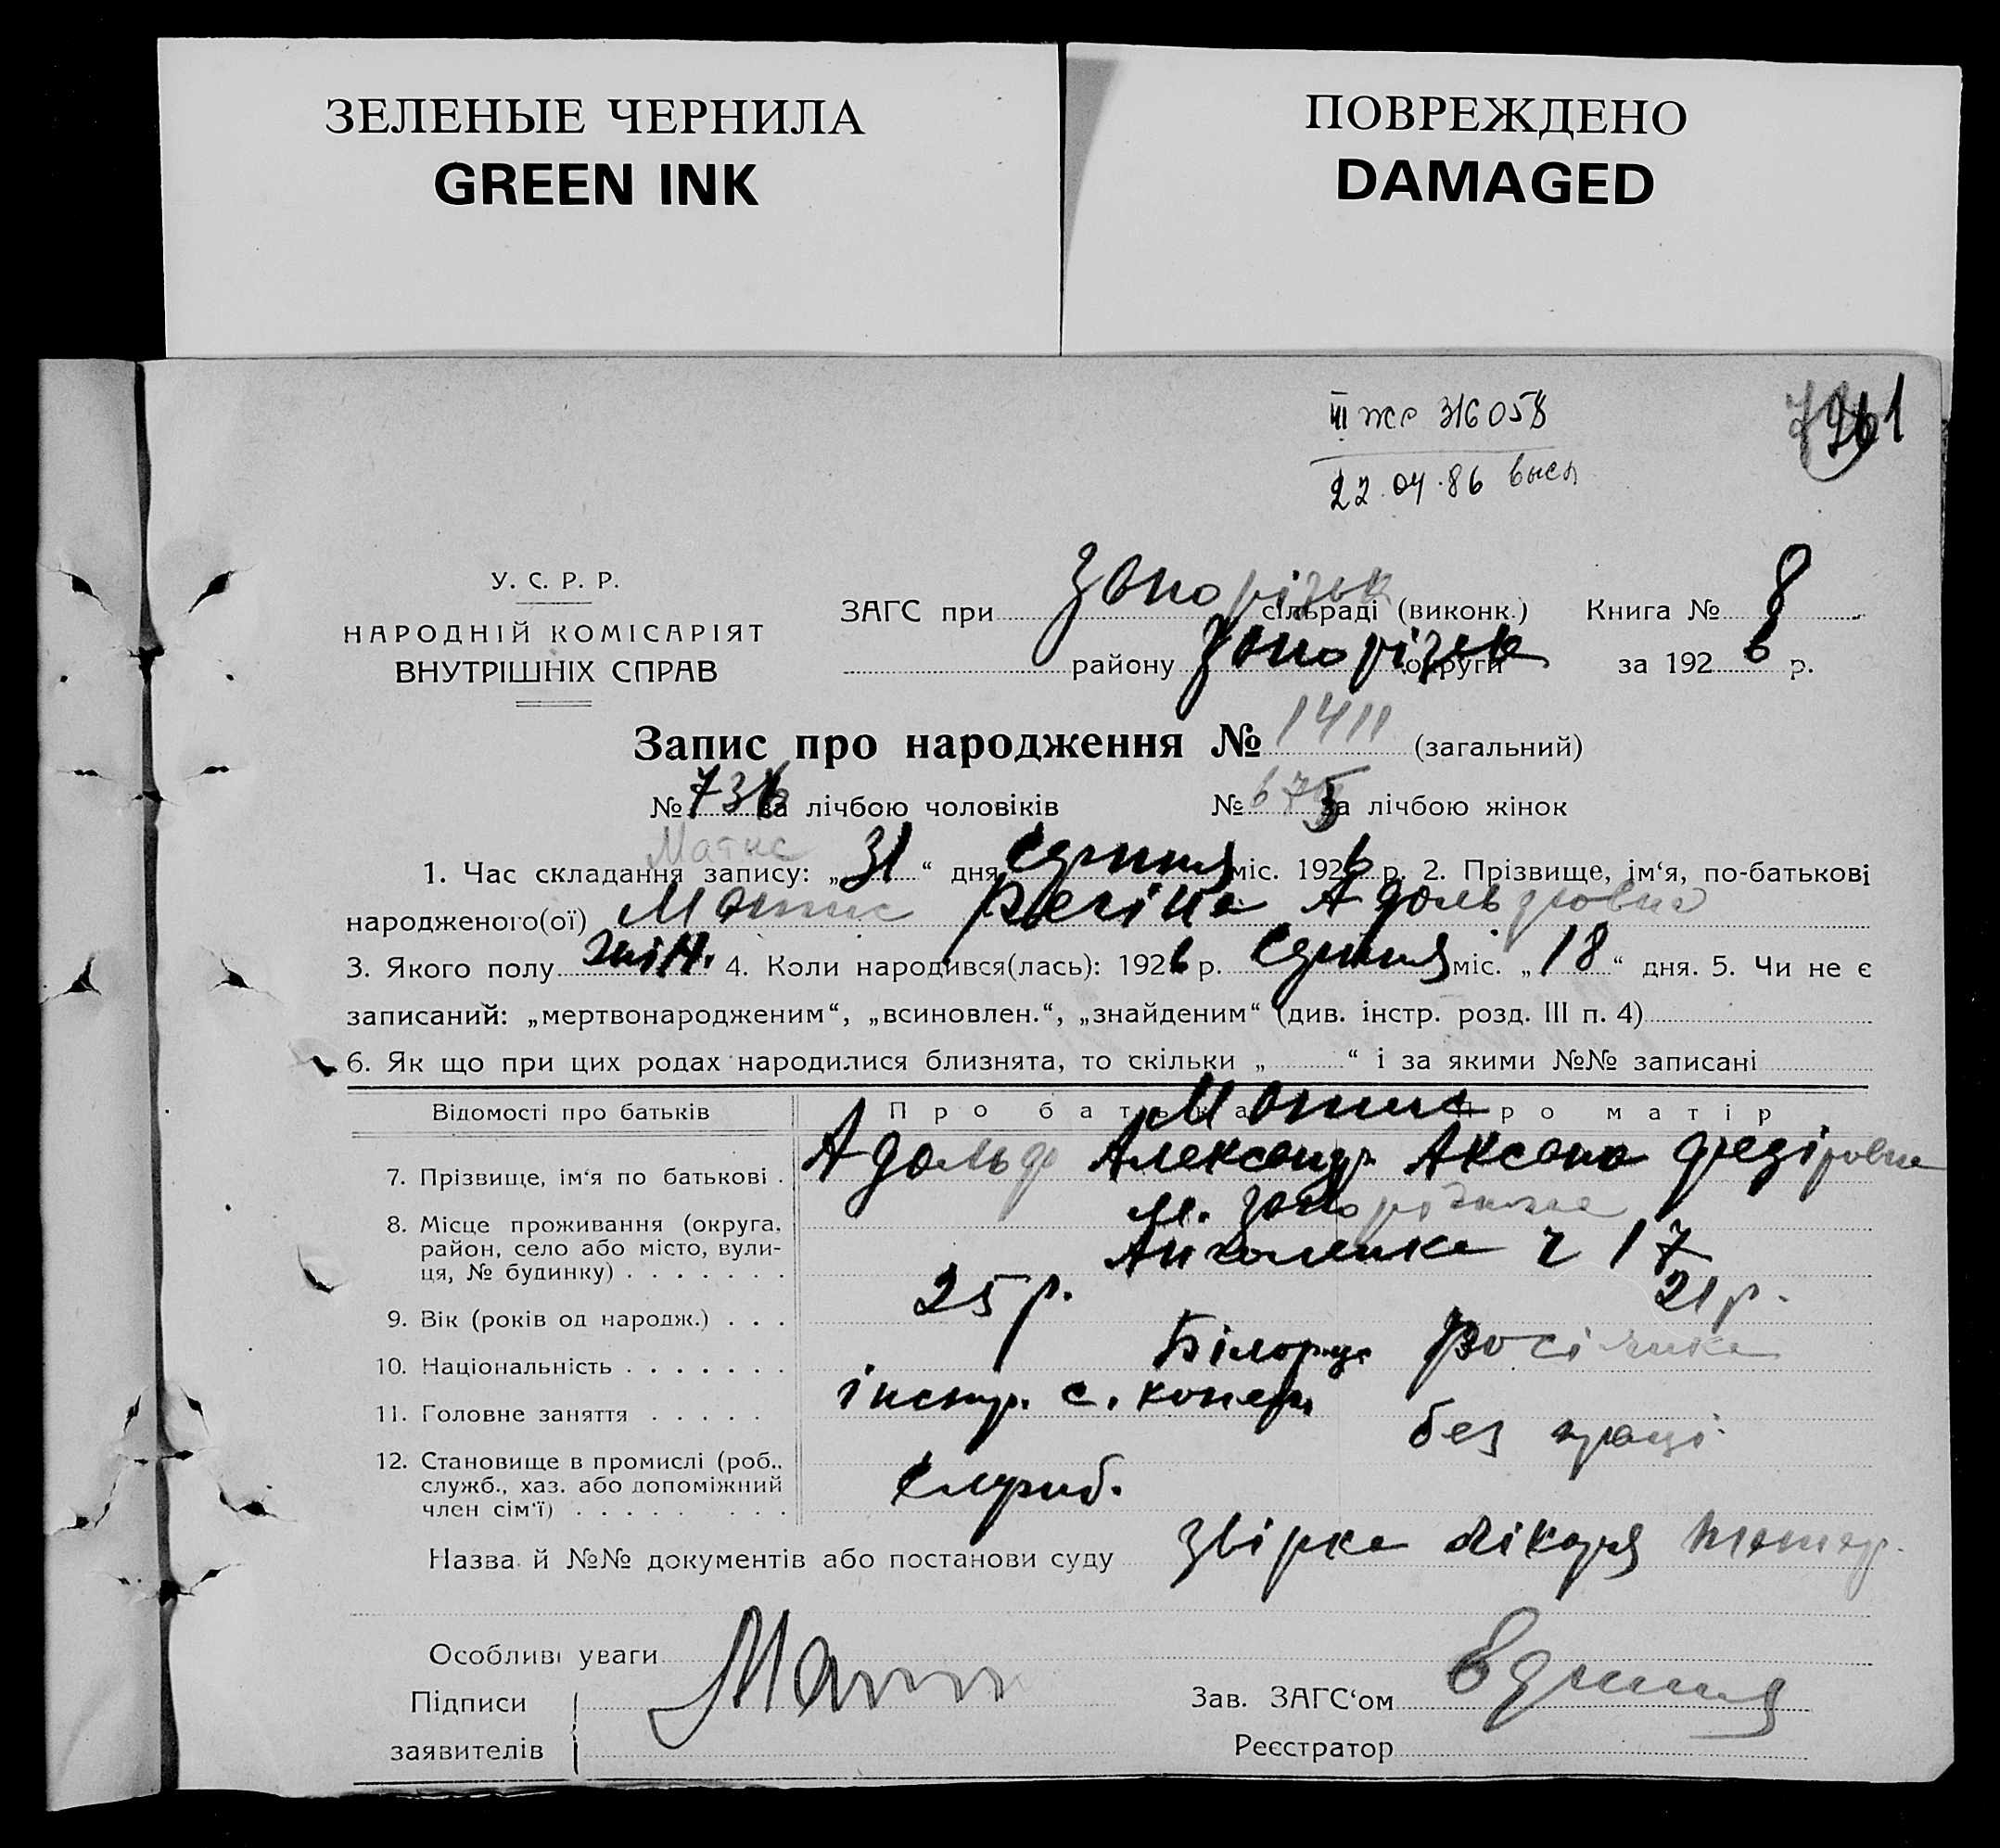 ЗЕЛЕНЫЕ ЧЕРНИЛА
GREEN INK
ПОВРЕЖДЕНО
DAMAGED
III жс 316058
22.04.86 высл
У. С. Р. Р.
НАРОДНІЙ КОМІСАРІЯТ
ВНУТРІШНІХ СПРАВ
ЗАГС при Запорізьк сільраді (виконк.) Книга № 8
району Запорізьк округи за 1926 р.
Запис про народження № 1411 (загальний)
№ 736 за лічбою чоловіків № 675 за лічбою жінок
Матис
1. Час складання запису: „31“ дня серпня міс. 1926 р. 2. Прізвище, ім‘я, по-батькові
народженого(ої) Матис Регіна Адольфовна
3. Якого полу жін. 4. Коли народився(лась): 1926 р. серпня міс. „18“ дня. 5. Чи не є
записаний: „мертвонародженим“, „всиновлен.“, „знайденим“ (див. інстр. розд. III п. 4)
6. Як що при цих родах народилися близнята, то скільки „ “ і за якими №№ записані
Відомості про батьків Про батька Про матір
Матис
7. Прізвище, ім‘я по батькові . Адольф Александр. Аксана Федіровна
8. Місце проживання (округа, район, село або місто, вули-ця, № будинку) . . . . . . . м. Запоріжже
ч 17
9. Вік (років од народж.) . . . 25 р. 21 р.
10. Національність . . . . . . . Білорус Росіянка
11. Головне заняття . . . . . інстр. с. копер. без праці
12. Становище в промислі (роб.. служб., хаз. або допоміжний член сім‘ї) . . . . . . . . . служб.
Назва й №№ документів або постанови суду звірка лікаря
Особливі уваги
Підписи Матис Зав. ЗАГС‘ом
заявителів Реєстратор